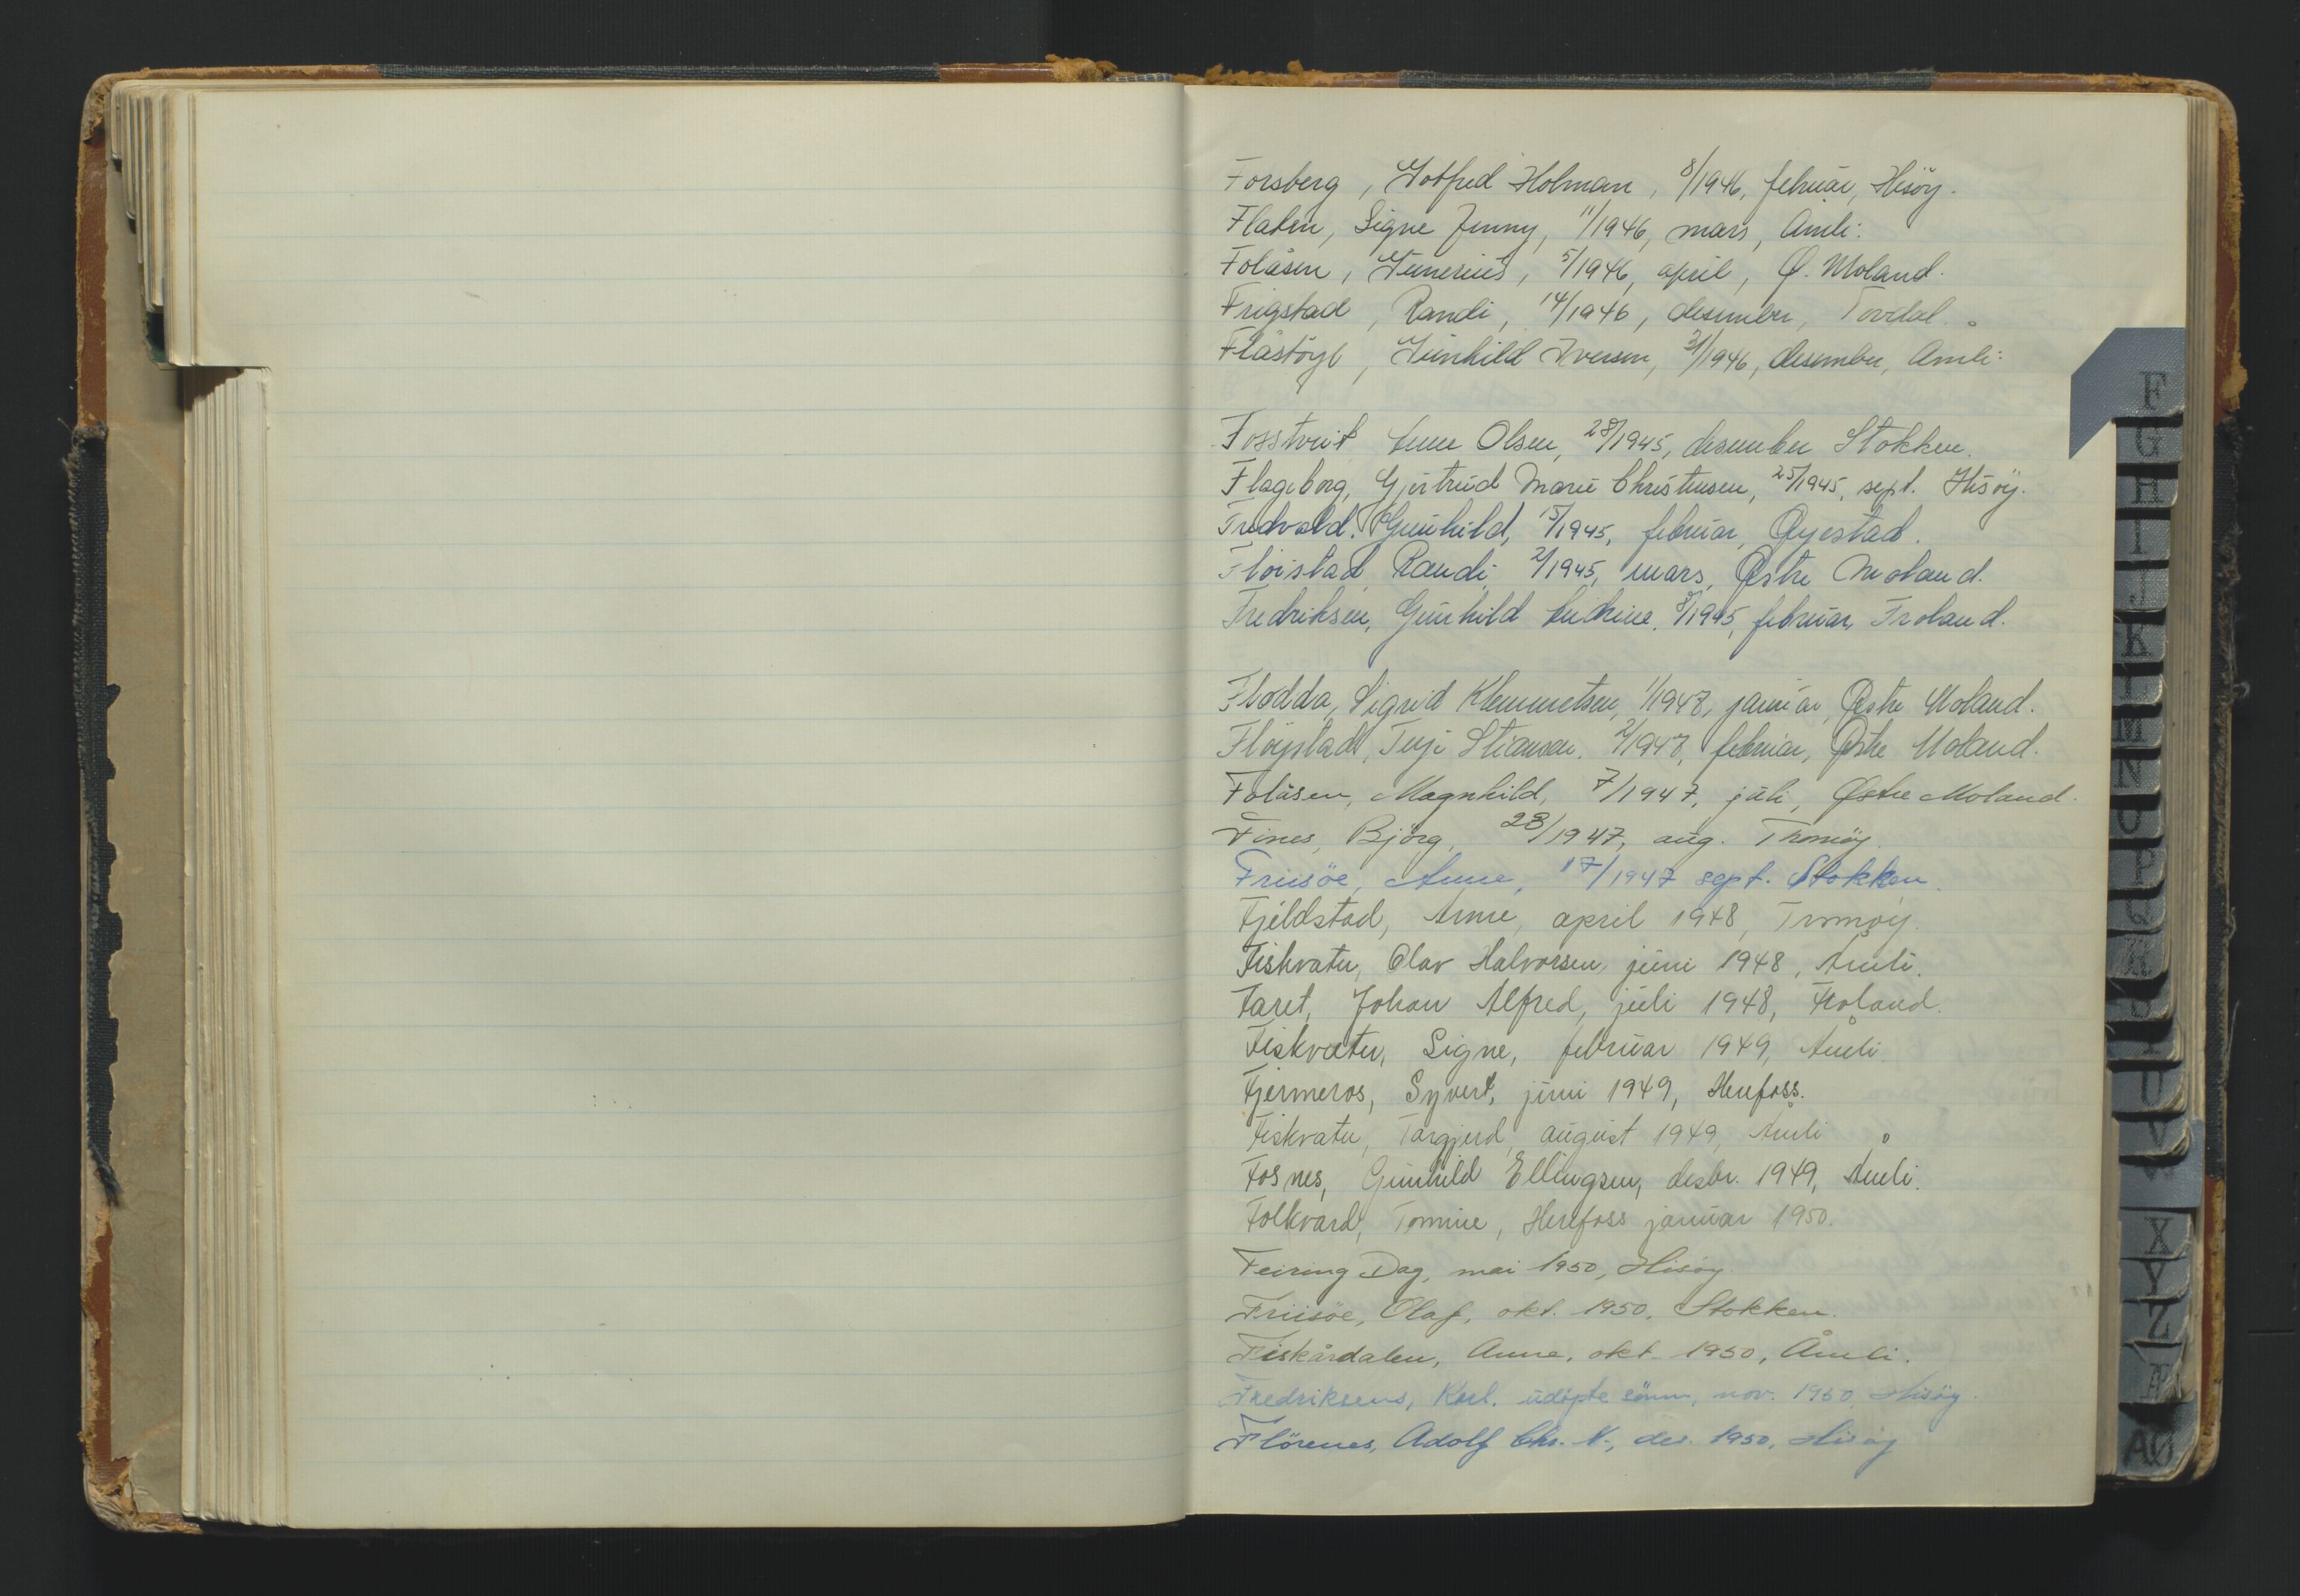 Forsberg, Gotfred Holman, 8/1946, februar, Hisöy.
Flaten, Signe Jenny, 11/1946, mars, Åmli.
Folåsen, Gunerius, 5/1946, april, Ø. Moland.
Frigstad, Randi, 14/1946, desember, Tovdal.
Flåstöyl, Gunhild Iversen, 31/1946, desember, Åmli.
Fosstveit Anne Olsen, 28/1945, desember Stokken.
Flageborg, Gjertrud Marie Christensen, 25/1945, sept. Hisöy.
Fredvald. Gunhild, 15/1945, februar, Øyestad.
Flöistad, Randi, 2/1945, mars, Østre Moland.
Fredriksen, Gunhild 8/1945, februar, Froland.
Flodda, Sigrid Klemmetsen, 1/1947, januar, Østre Moland.
Flöystad, Terje Stiansen, 2/1947, februar, Østre Moland.
Folåsen, Magnhild, 7/1947, juli, Østre Moland.
Fines, Björg, 28/1947, aug. Tromöy.
Friisöe, Anne, 17/1947 sept. Stokken.
Fjeldstad, Anne, april 1948, Tromøy.
Fiskvatn, Olav Halvorsen, juni 1948, Åmli.
Faret, Johan Alfred, juli 1948, Froland.
Fiskvatn, Signe, februar 1949, Åmli.
Fjermeros, Syvert, juni 1949, Herefoss.
Fiskvatn, Torgjerd, august 1949, Åmli
Fosnes, Gunhild Ellingsen, desbr. 1949, Åmli.
Folkvard, Tomine, Herefoss januar 1950.
Feiring Dag, mai 1950, Hisøy
Friisöe, Olaf, okt. 1950, Stokken.
Fiskårdalen, Anne, okt. 1950, Åmli.
Fredriksens, Karl. udöpte sönn, nov. 1950, Hisöy.
Flörenes, Adolf Chr. N., des. 1950, Hisöy
F
G
H
I
J
K
L
M
N
O
P
Q
R
S
T
U
V
X
Y
Z
Æ
AØ